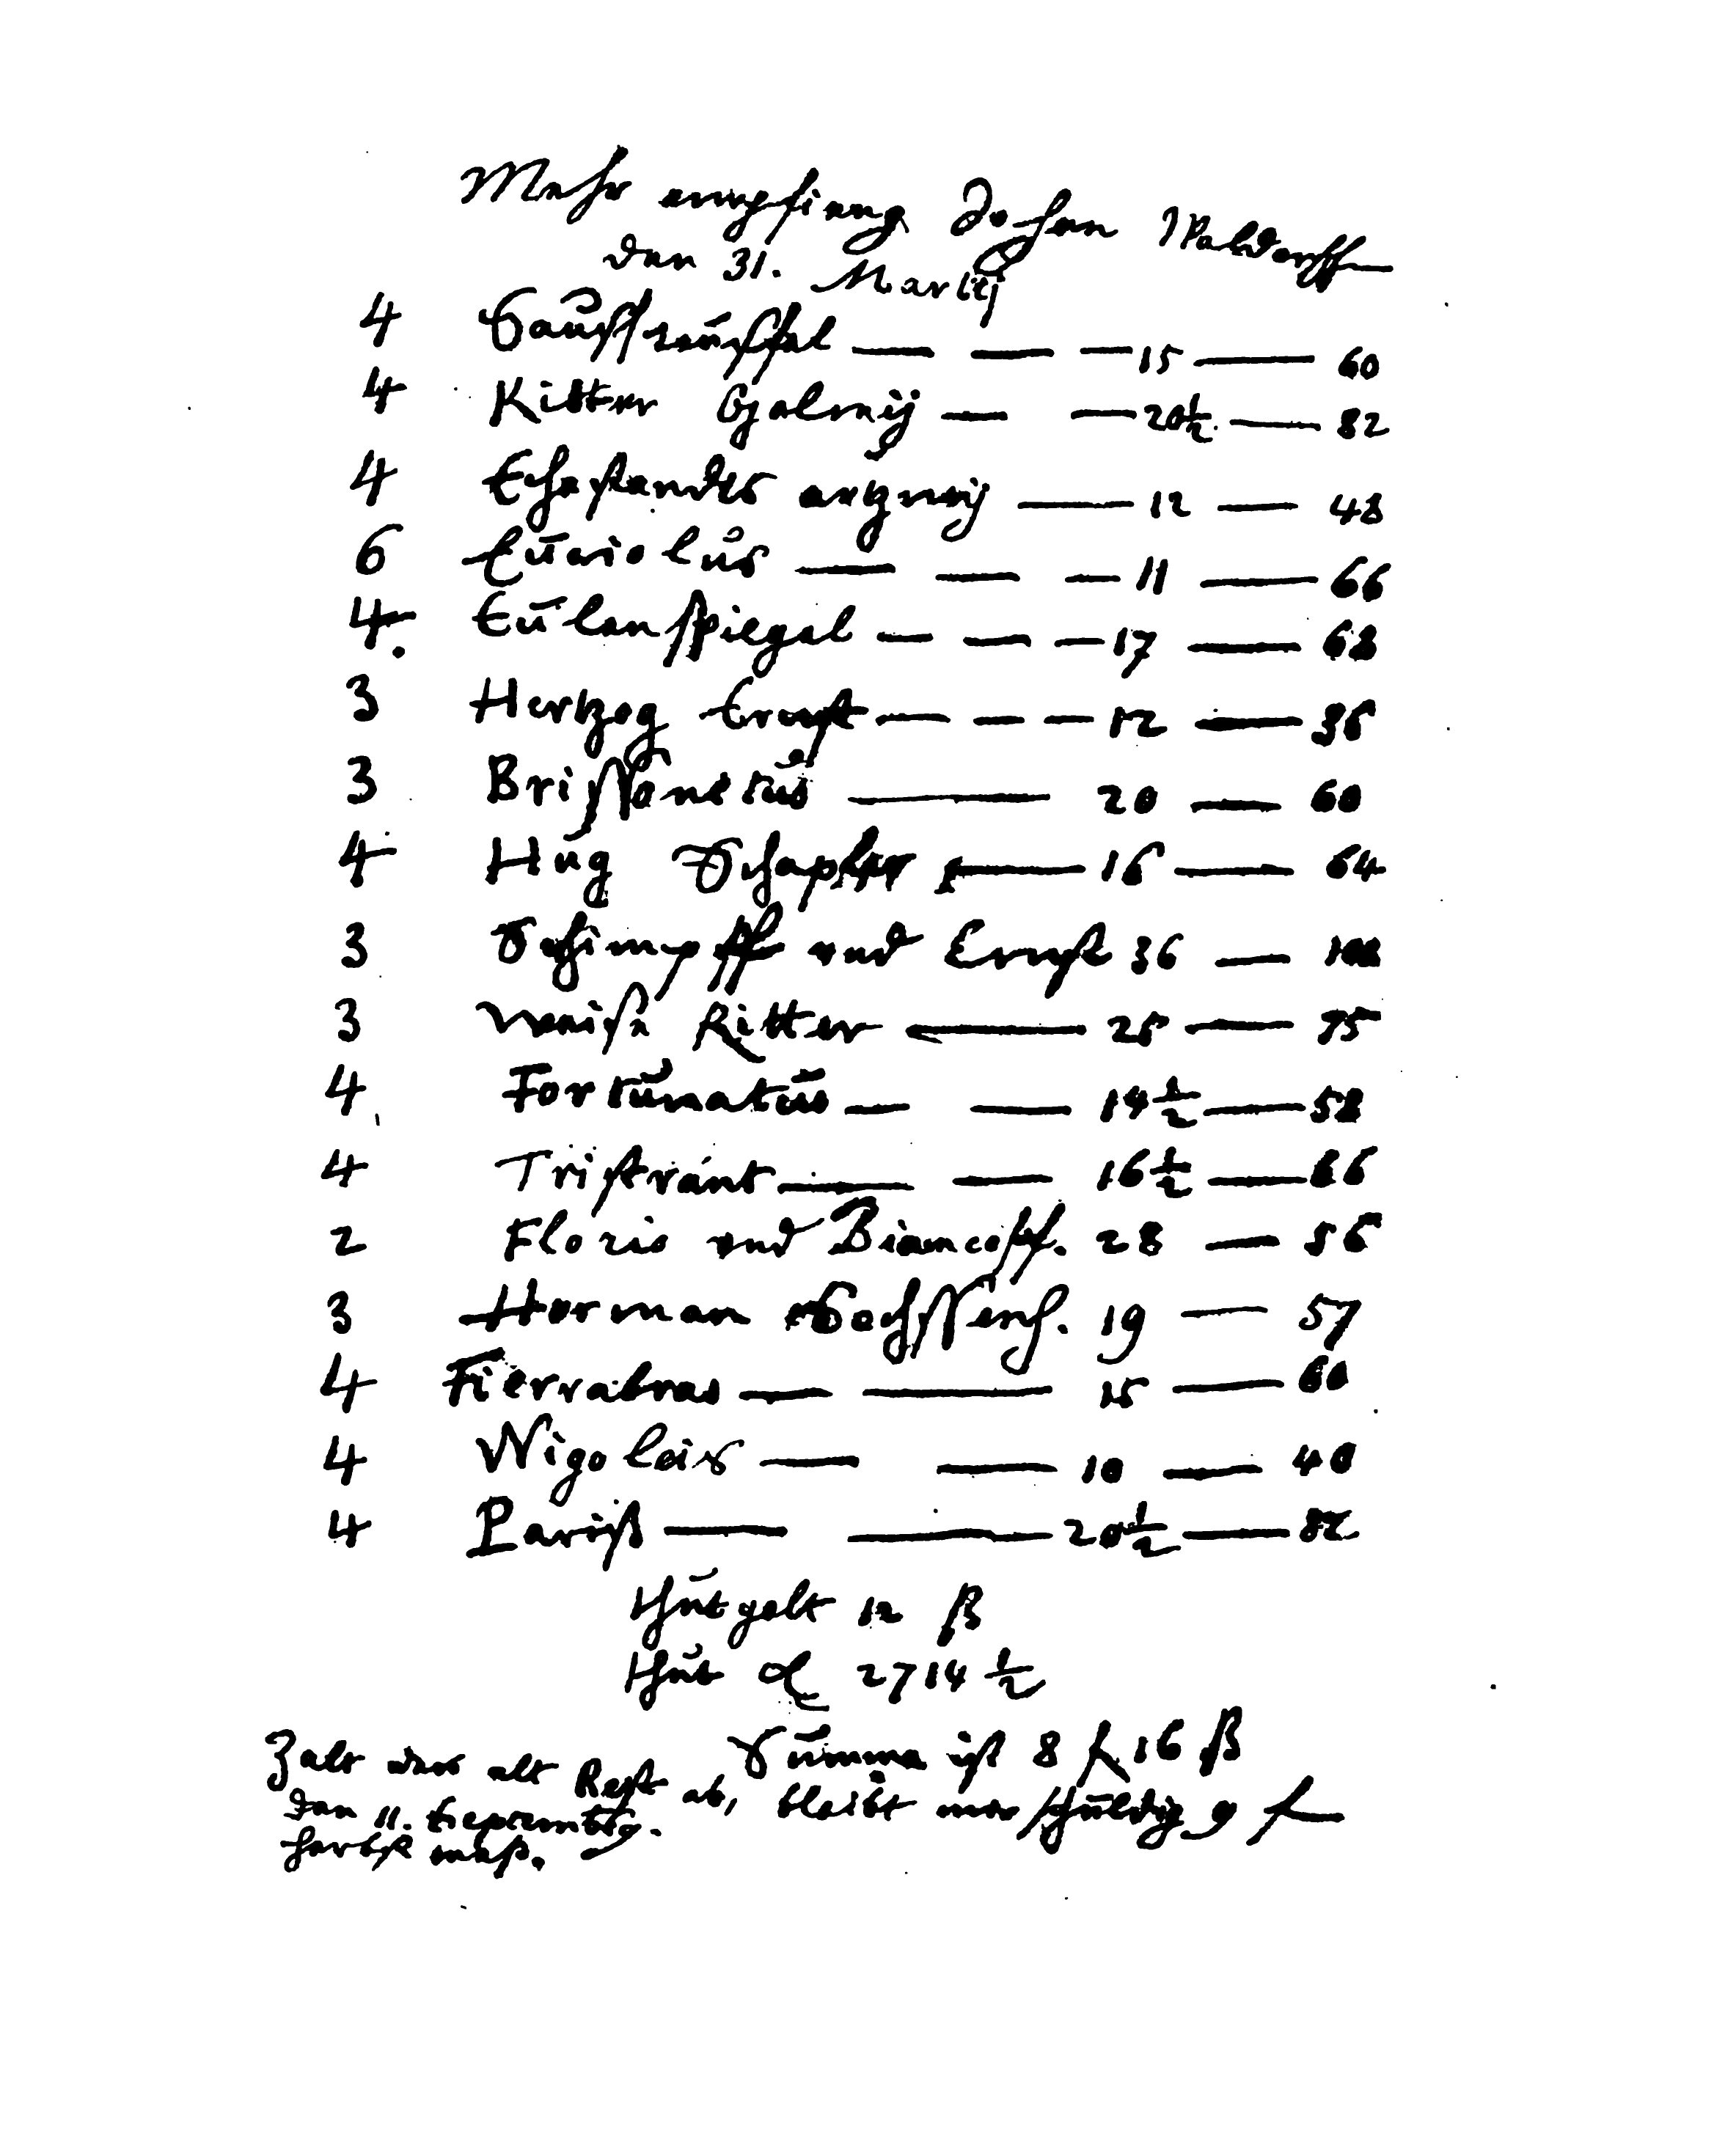 Mehr empfieng Johan Waldorff
den 31. Martij
4 Haußzüchtal — — — 15 — 60
4 Ritter Galmij — — 20½ — 82
4 Ehstandts artzneij — 12 — 48
6 Euriolus — — — 11 — 66
4. Eulenspiegel — — — 17 — 68
3 Hertzog Ernst — — — 12 — 36
3 Brissonetus — 20 — 60
4 Hug Schapler — 16 — 64
3 Schimpff und Ernst 36 — 108
3 Weiße Ritter — 25 — 75
4 Fortunatus — — 14½ — 58
4 Tristrant — — 16½ — 66
2 Florio und Biancoff. 28 — 56
3 Herman Sachssenh. 19 — 57
4 Fierrabras — — 15 — 60
4 Wigoleis — — 10 — 40
4 Pariß — — 20½ — 82
12 ß
2714½
Summa ist 8 16 ß
Zalt den alt Rest ab, bleibt mir schuldig 9
den 11. Septembr.
herbst meß.